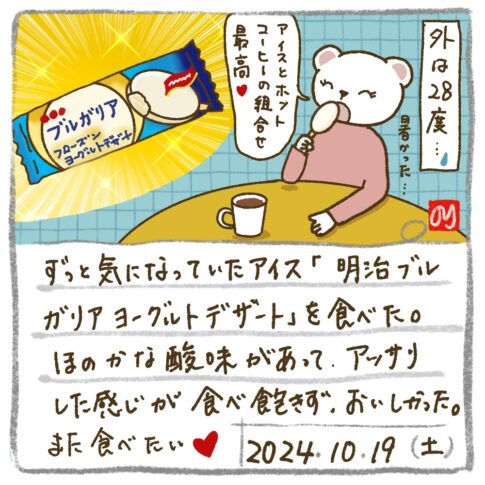 外は28度…
暑かった…
アイスとホット
コーヒーの組合せ
最高♥
ブルガリア
フローズン
ヨーグルトデザート
ずっと気になっていたアイス「明治ブル
ガリア ヨーグルトデザート」を食べた。
ほのかな酸味があって、アッサリ
した感じが食べ飽きず、おいしかった。
また食べたい♥
2024.10.19 (土)